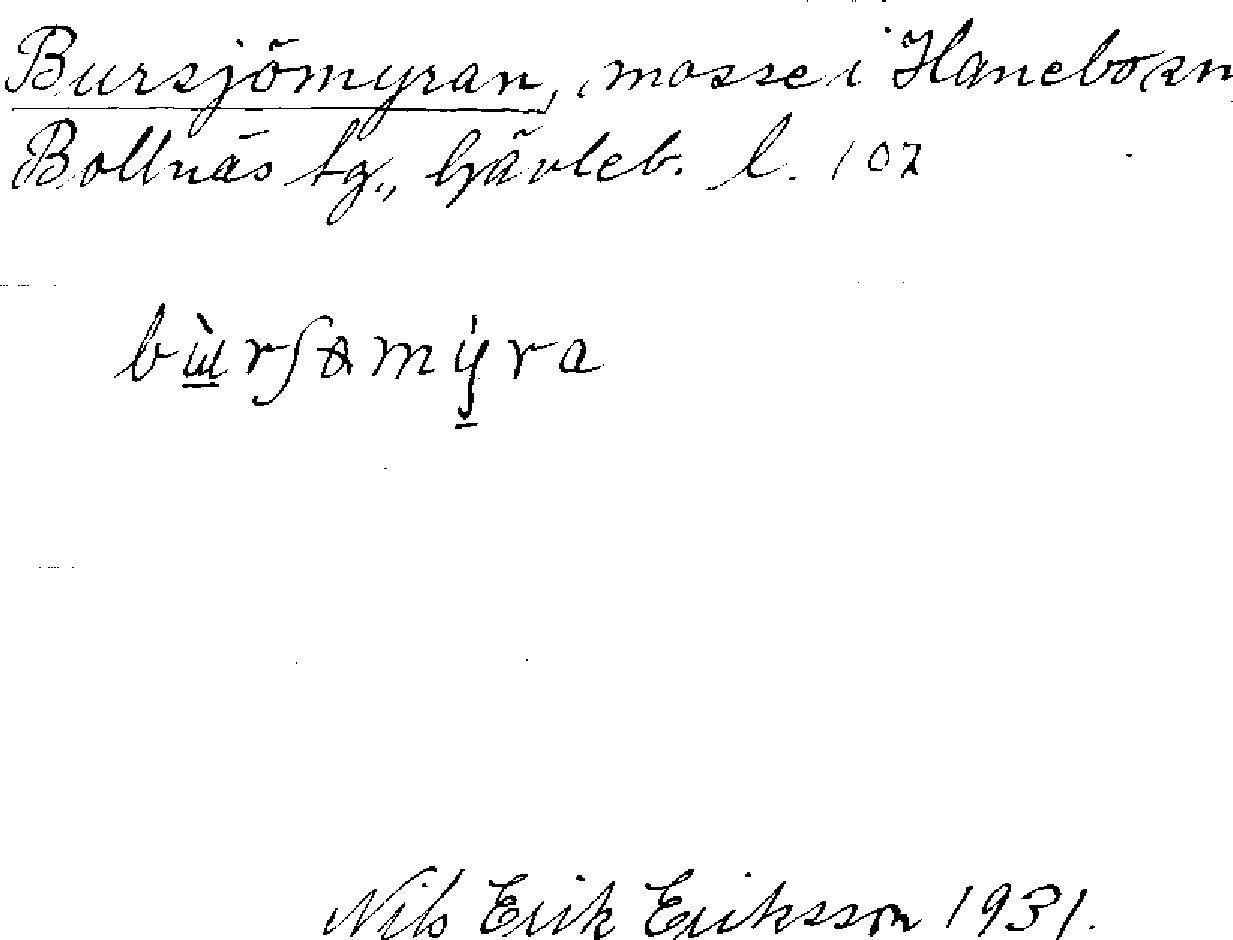 Bursjömyran, mosse i Hanebo sn
Bollnäs tg., Gävleb. l. 107
Nils Erik Eriksson 1931.